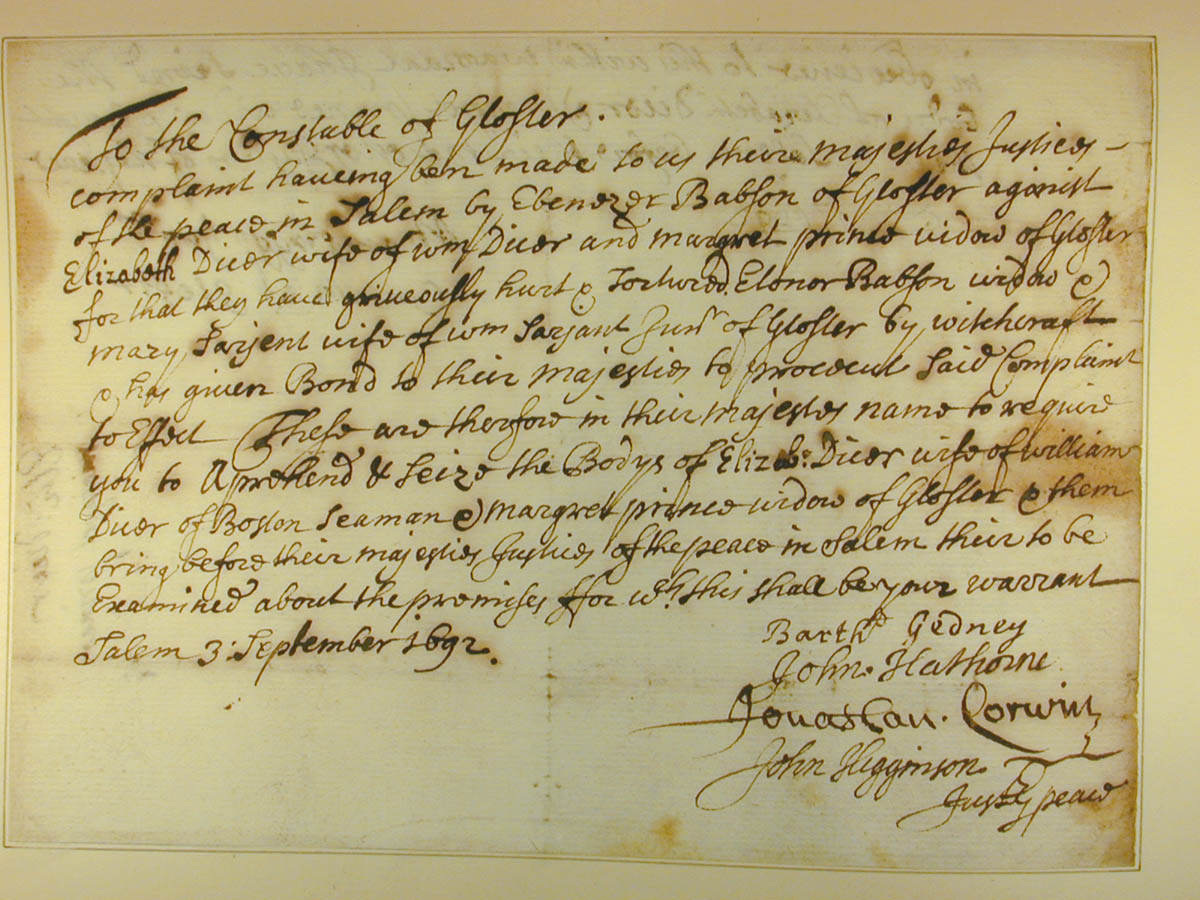 To the Constable of Gloster.
complaint haueing ben made to us their majesties Justices
of the peace in Salem by Ebenezer Babson of Gloster agenist
Elizabeth Dicer wife of wm Dicer and margret prince widow of Gloster
for that they haue grieueously hurt & Tortured Elonor Babson widow &
mary Sarjent wife of wm Sarjant Junr of Gloster by witchcraft
& has given Bond to their majesties to prosecut Said Complaint
to Effect These are therfore in their majestes name to require
you to Aprehend & Seize the Bodys of Elizab: Dicer wife of william
Dicer of Boston Seaman & margret prince widow of Gloster & them
bring before their majesties Justices of the peace in Salem their to be
Examined about the premises ffor wch this shall be your warrant
Salem 3: September 1692.
Bartho Gedney
John. Hathorne
Jonathan. Corwin
John Higginson
Just peace